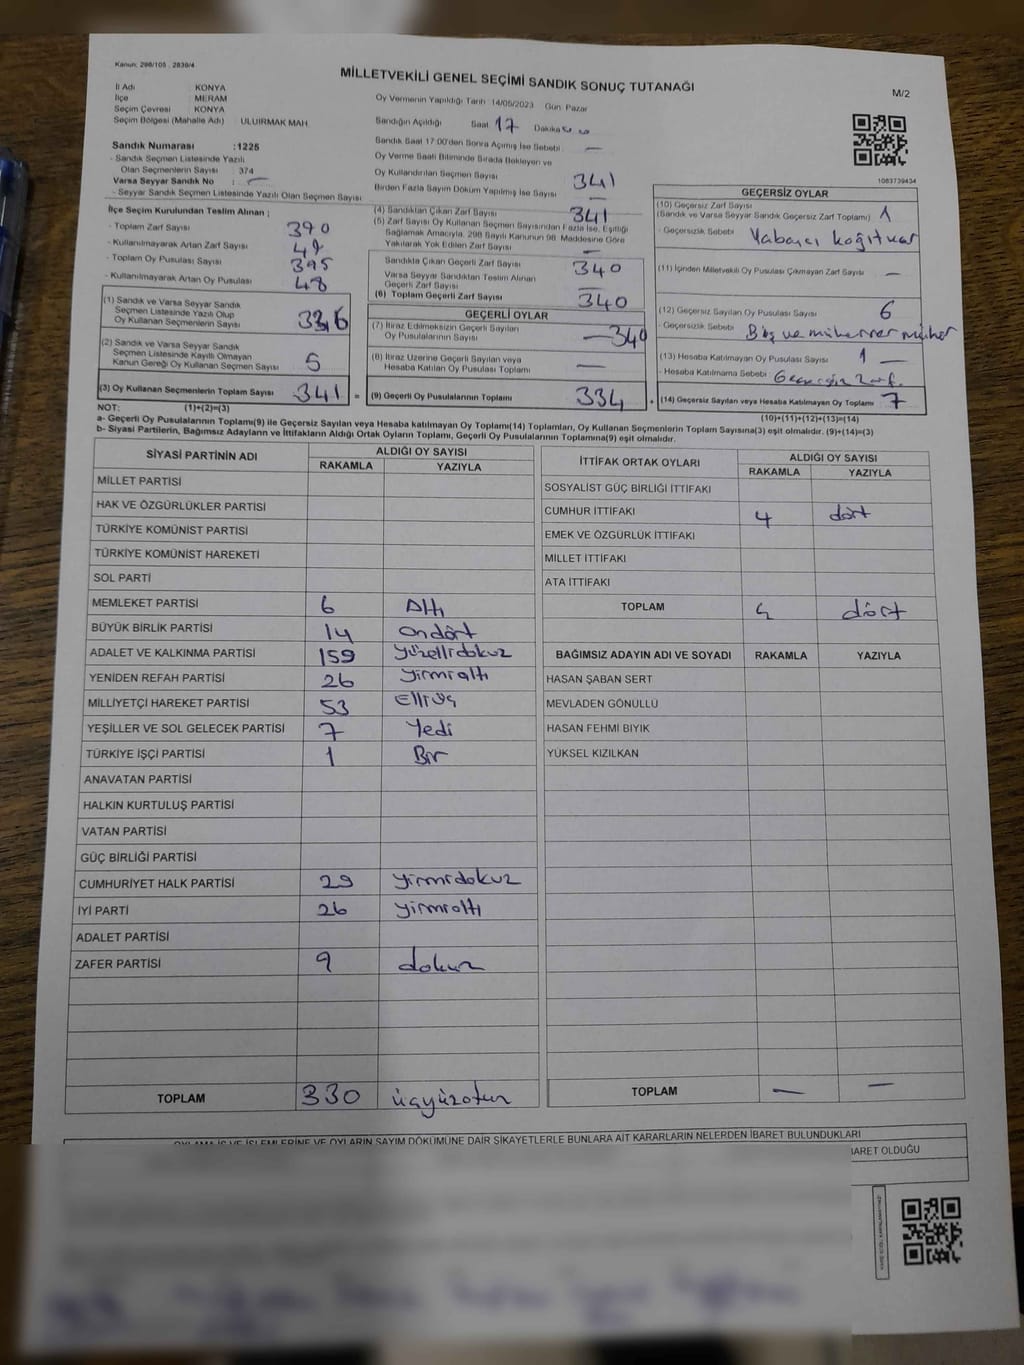 Kanun: 298/105 , 2839/4
MİLLETVEKİLİ GENEL SEÇİMİ SANDIK SONUÇ TUTANAĞI
M/2
İl Adı : KONYA
İlçe : MERAM
Seçim Çevresi : KONYA
Seçim Bölgesi (Mahalle Adı) : ULUIRMAK MAH.
Sandık Numarası :1225
- Sandık Seçmen Listesinde Yazılı
Olan Seçmenlerin Sayısı : 374
Varsa Seyyar Sandık No : —
- Seyyar Sandık Seçmen Listesinde Yazılı Olan Seçmen Sayısı
Oy Vermenin Yapıldığı Tarih :14/05/2023 Gün: Pazar
Sandığın Açıldığı Saat 17 Dakika
Sandık Saat 17:00'den Sonra Açılmış İse Sebebi : —
Oy Verme Saati Bitiminde Sırada Bekleyen ve
Oy Kullandırılan Seçmen Sayısı 341
Birden Fazla Sayım Döküm Yapılmış İse Sayısı —
1083739434
İlçe Seçim Kurulundan Teslim Alınan ;
- Toplam Zarf Sayısı 390
- Kullanılmayarak Artan Zarf Sayısı 49
- Toplam Oy Pusulası Sayısı 395
- Kullanılmayarak Artan Oy Pusulası 48
(1) Sandık ve Varsa Seyyar Sandık
Seçmen Listesinde Yazılı Olup
Oy Kullanan Seçmenlerin Sayısı 336
(2) Sandık ve Varsa Seyyar Sandık
Seçmen Listesinde Kayıtlı Olmayan
Kanun Gereği Oy Kullanan Seçmen Sayısı 5
(3) Oy Kullanan Seçmenlerin Toplam Sayısı 341 =
(4) Sandıktan Çıkan Zarf Sayısı 341
(5) Zarf Sayısı Oy Kullanan Seçmen Sayısından Fazla İse, Eşitliği
Sağlamak Amacıyla, 298 Sayılı Kanunun 98. Maddesine Göre
Yakılarak Yok Edilen Zarf Sayısı —
Sandıkta Çıkan Geçerli Zarf Sayısı 340
Varsa Seyyar Sandıktan Teslim Alınan
Geçerli Zarf Sayısı —
(6) Toplam Geçerli Zarf Sayısı 340
GEÇERLİ OYLAR
(7) İtiraz Edilmeksizin Geçerli Sayılan
Oy Pusulalarının Sayısı —340
(8) İtiraz Üzerine Geçerli Sayılan veya
Hesaba Katılan Oy Pusulası Toplamı —
(9) Geçerli Oy Pusulalarının Toplamı 334 +
GEÇERSİZ OYLAR
(10) Geçersiz Zarf Sayısı
(Sandık ve Varsa Seyyar Sandık Geçersiz Zarf Toplamı) 1
- Geçersizlik Sebebi : Yabancı koğıt var
(11) İçinden Milletvekili Oy Pusulası Çıkmayan Zarf Sayısı —
(12) Geçersiz Sayılan Oy Pusulası Sayısı 6
- Geçersizlik Sebebi : Boş ve mükerrer mühür
(13) Hesaba Katılmayan Oy Pusulası Sayısı 1 —
- Hesaba Katılmama Sebebi : Geçersiz Zarf.
(14) Geçersiz Sayılan veya Hesaba Katılmayan Oy Toplamı 7
NOT: (1)+(2)=(3)
(10)+(11)+(12)+(13)=(14)
a- Geçerli Oy Pusulalarının Toplamı(9) ile Geçersiz Sayılan veya Hesaba Katılmayan Oy Toplamı(14) Toplamları, Oy Kullanan Seçmenlerin Toplam Sayısına(3) eşit olmalıdır. (9)+(14)=(3)
b- Siyasi Partilerin, Bağımsız Adayların ve İttifakların Aldığı Ortak Oyların Toplamı, Geçerli Oy Pusulalarının Toplamına(9) eşit olmalıdır.
SİYASİ PARTİNİN ADI ALDIĞI OY SAYISI
RAKAMLA YAZIYLA
MİLLET PARTİSİ
HAK VE ÖZGÜRLÜKLER PARTİSİ
TÜRKİYE KOMÜNİST PARTİSİ
TÜRKİYE KOMÜNİST HAREKETİ
SOL PARTİ
MEMLEKET PARTİSİ 6 Altı
BÜYÜK BİRLİK PARTİSİ 14 ondört
ADALET VE KALKINMA PARTİSİ 159 yüzellidokuz
YENİDEN REFAH PARTİSİ 26 yirmialtı
MİLLİYETÇİ HAREKET PARTİSİ 53 Elliüç
YEŞİLLER VE SOL GELECEK PARTİSİ 7 Yedi
TÜRKİYE İŞÇİ PARTİSİ 1 Bir
ANAVATAN PARTİSİ
HALKIN KURTULUŞ PARTİSİ
VATAN PARTİSİ
GÜÇ BİRLİĞİ PARTİSİ
CUMHURİYET HALK PARTİSİ 29 yirmidokuz
İYİ PARTİ 26 yirmialtı
ADALET PARTİSİ
ZAFER PARTİSİ 9 dokuz
TOPLAM 330 üçyüzotuz
İTTİFAK ORTAK OYLARI ALDIĞI OY SAYISI
RAKAMLA YAZIYLA
SOSYALİST GÜÇ BİRLİĞİ İTTİFAKI
CUMHUR İTTİFAKI 4 dört
EMEK VE ÖZGÜRLÜK İTTİFAKI
MİLLET İTTİFAKI
ATA İTTİFAKI
TOPLAM 4 dört
BAĞIMSIZ ADAYIN ADI VE SOYADI RAKAMLA YAZIYLA
HASAN ŞABAN SERT
MEVLADEN GÖNÜLLÜ
HASAN FEHMİ BIYIK
YÜKSEL KIZILKAN
TOPLAM — —
OYLAMA İŞ VE İŞLEMLERİNE VE OYLARIN SAYIM DÖKÜMÜNE DAİR ŞİKAYETLERLE BUNLARA AİT KARARLARIN NELERDEN İBARET BULUNDUKLARI
BARET OLDUĞU